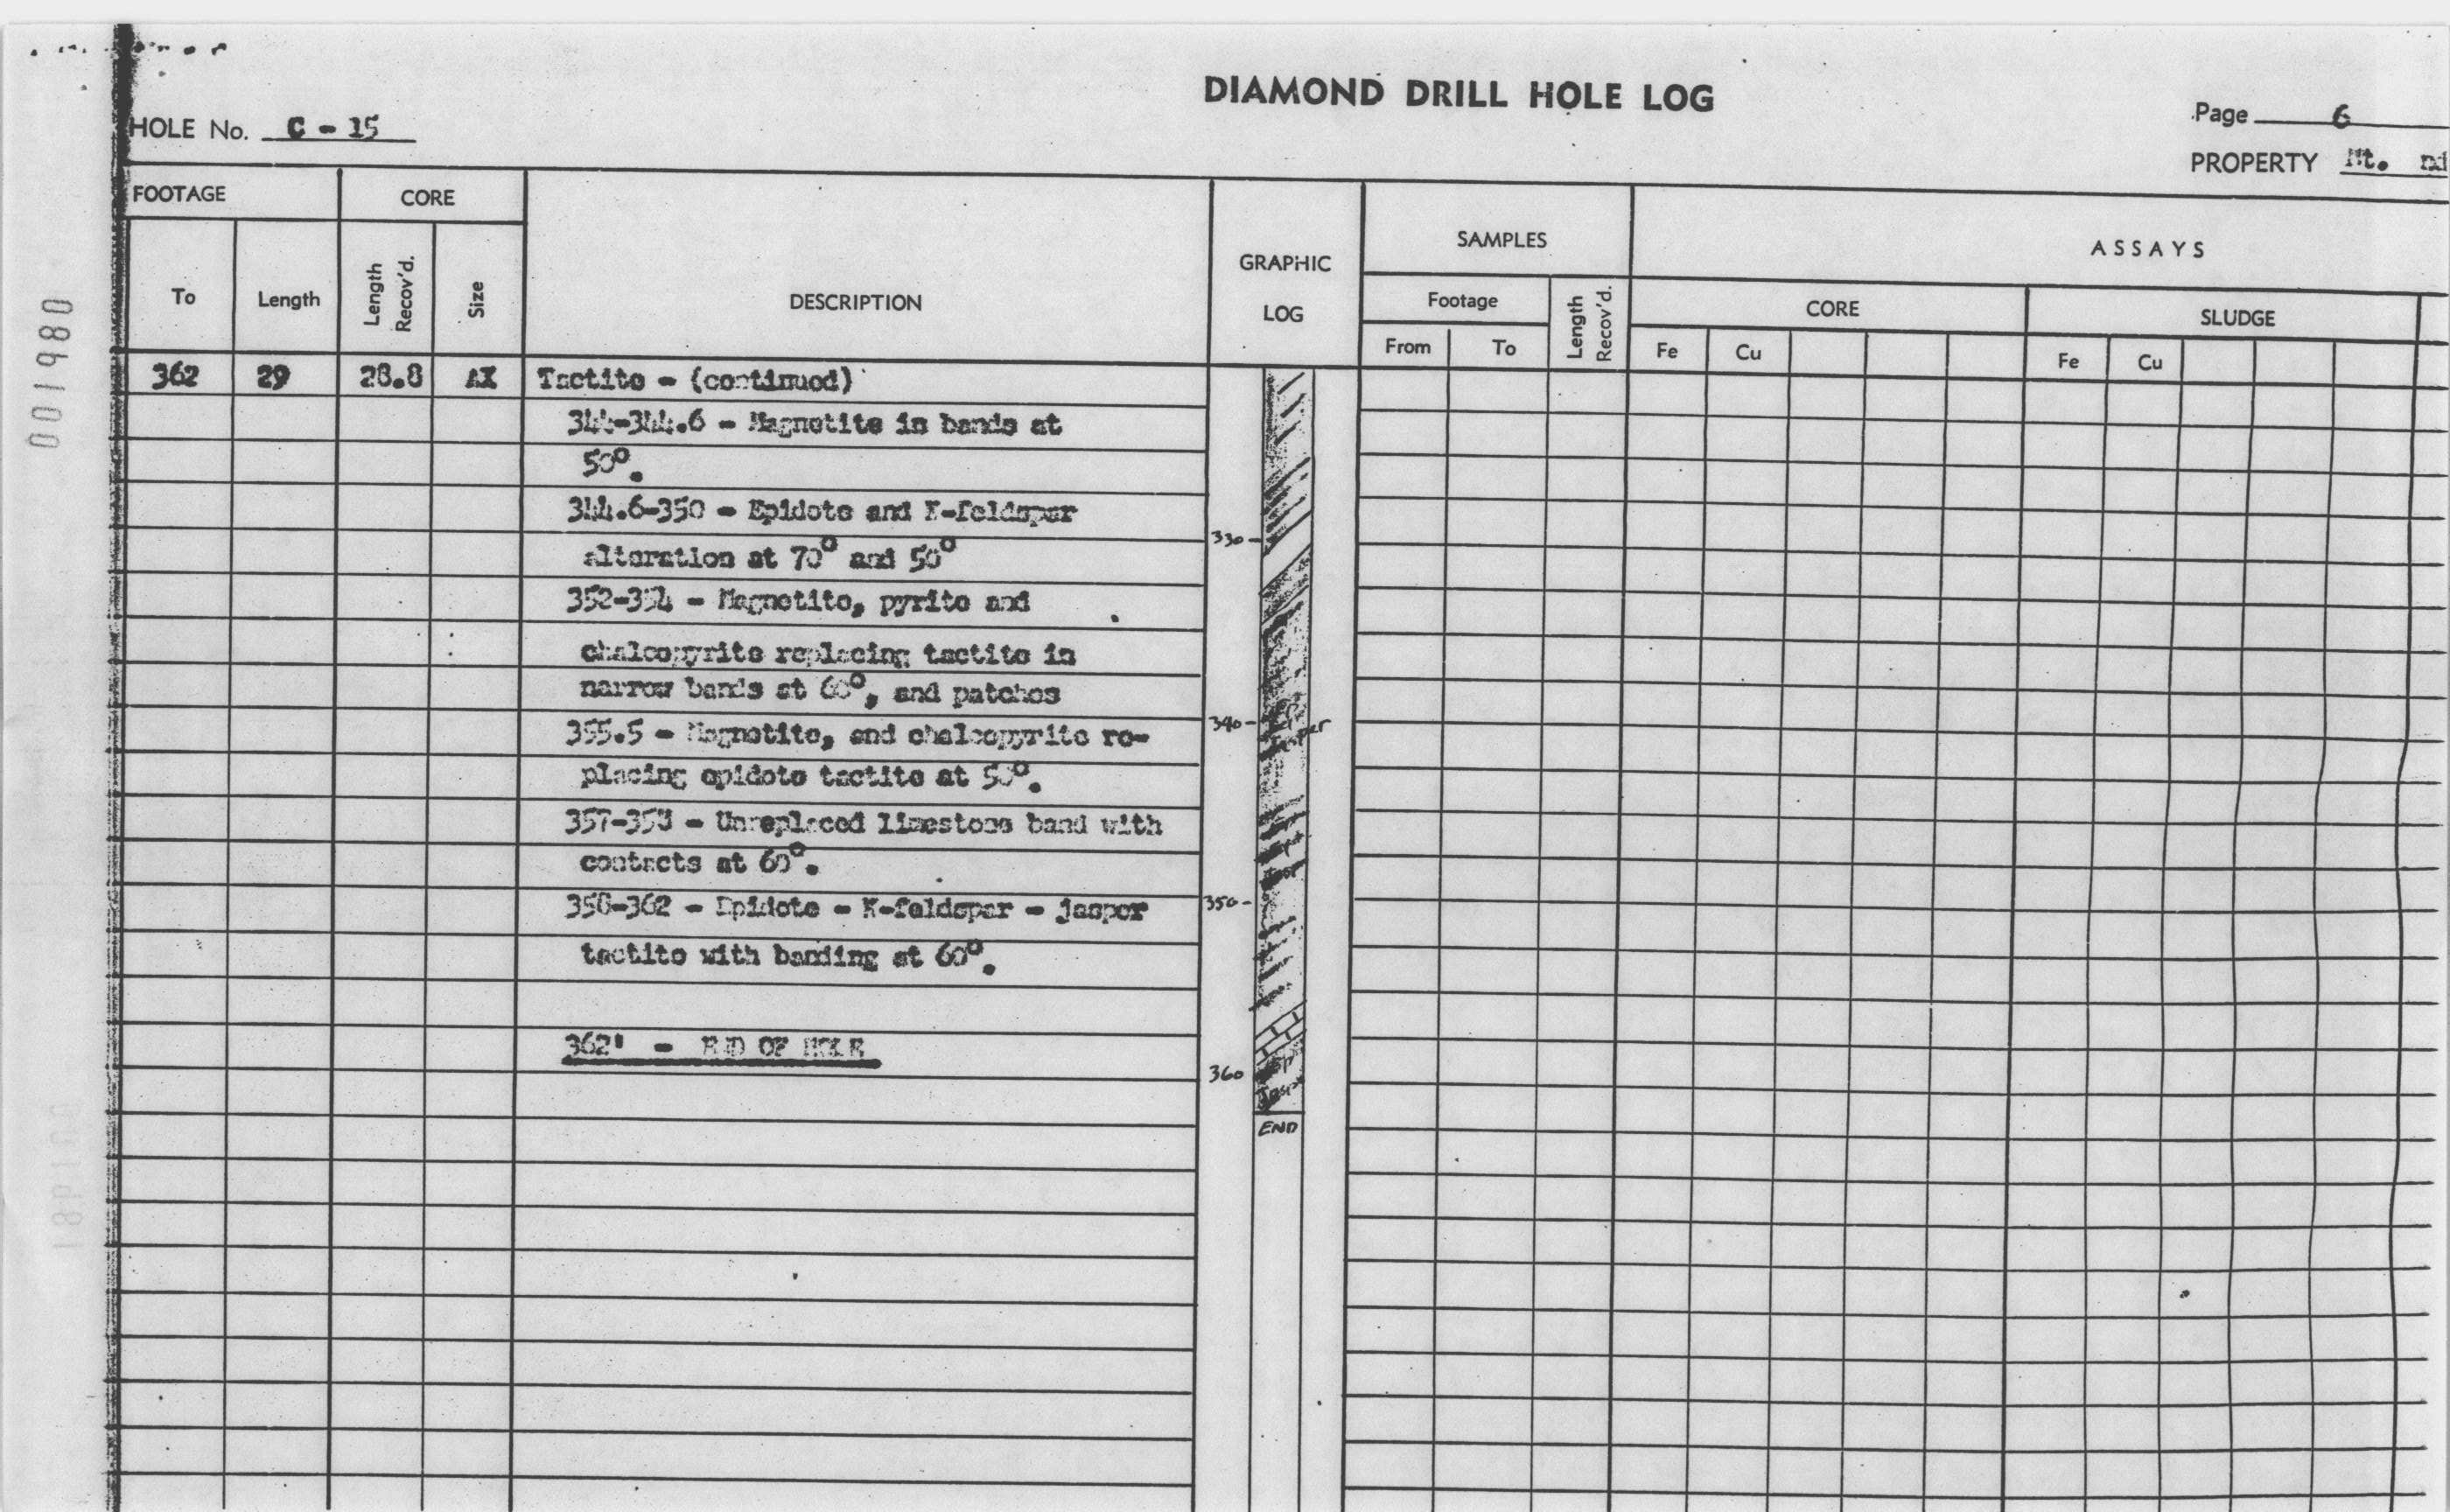 DIAMOND DRILL HOLE LOG
HOLE No. C - 15
Page 6
PROPERTY Mt.
FOOTAGE
CORE
To
Length
Length Recov'd.
Size
DESCRIPTION
GRAPHIC
LOG
SAMPLES
Footage
From
To
Length Recov'd.
ASSAYS
CORE
Fe
Cu
SLUDGE
Fe
Cu
362 29 28.8 AX Tactite - (continued)
344-344.6 - Magnetite in bands at
50°.
344.6-350 - Epidote and K-feldspar
alteration at 70° and 50°
352-354 - Magnetite, pyrite and
chalcopyrite replacing tactite in
narrow bands at 60°, and patches
355.5 - Magnetite, and chalcopyrite re-
placing epidote tactite at 50°.
357-358 - Unreplaced limestone band with
contacts at 60°.
358-362 - Epidote - K-feldspar - jasper
tactite with banding at 60°.
362' - END OF HOLE
330
340
350
360
END
001980